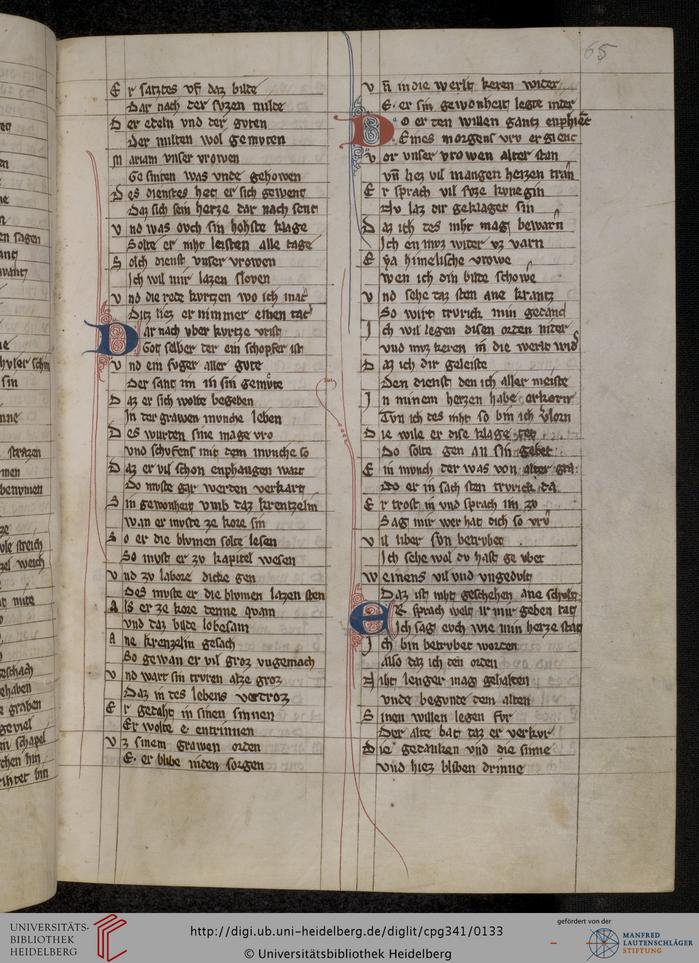 65
Er satztes vf daz bilde
Dar nach der suzen milde
Der edeln vnd der guten
Der milten wol gemuten
Mariam vnser vrowen
Ge sinten was vnde gehowen
Des dienstes het er sich gewent
Daz sich sein herze dar nach sent
Vnd was ouch sin hohste klage
Solte er niht leisten alle tage
Solch dienst vnser vrowen
Ich wil mir lazen slouen
Vnd die rede kurtzen wo ich mac
Ditz liez er nimmer einen tac
Dar nach vber kurtze vrist
Got selber der ein schopfer ist
Vnd ein fuger aller gute
Der sant im in sin gemute
Daz er sich wolte begeben
In der grawen munche leben
Des wurden sine mage vro
vnd schufens mit dem munche so
Daz er vil schon enphangen wart
Do muste gar werden verkart
Sin gewonheit vmb daz krentzelin
Wan er muste ze kore sin
So er die blumen solte lesen
So must er zv kapitel wesen
Vnd zv labore dicke gen
Des muste er die blumen lazen sten
Als er ze kore denne quam
Vnd daz bilde lobesam
Ane krenzelin gesach
So gewan er vil groz vngemach
Vnd wart sin truren alze groz
Daz in des lebens verdroz
Er gedaht in sinen sinnen
Er wolte e entrinnen
Vz sinem grawen orden
E er blibe in den sorgen
Vn in die werlt keren wider
E er sin gewonheit legte nider
Do er den willen gantz enphiec
Eines morgens vru er gienc
Vor vnser vrowen alter stan
Vn liez vil mangen heizen tran
Er sprach vil suze kunegin
Nv laz dir geklaget sin
Daz ich des niht mag bewarn
Ich en muz wider vz varn
Eya himelische vrowe
Wen ich din bilde schowe
Vnd sehe daz sten ane krantz
So wirt trurick min gedanc
Ich wil legen disen orden nider
vnd muz keren in die werlt wid
Daz ich dir geleiste
Den dienst den ich aller meiste
In minem herzen habe erkorn
Tun ich des niht so bin ich vlorn
Die wile er dise klage tet
Do solte gen an sin gebet
Ein munch der was von alter gra
Do er in sach sten trurick da
Er trost in vnd sprach im zv
Sag mir wer hat dich so vru
Vil liber sun betrubet
Ich sehe wal du hast ge vbet
Weinens vil vnd vngedult
Daz ist niht geschehen ane schult
Er sprach welt ir mir geben rat
Ich sag euch wie min herze stat
Ich bin betrubet worden
Also daz ich den orden
Niht lenger mag gehalten
vnde begunde dem alten
Sinen willen legen for
Der alte bat daz er verkur
Die gedanken vnd die sinne
Vnd hiez bliben drinne
UNIVERSITÄTS-
BIBLIOTHEK
HEIDELBERG
http://digi.ub.uni-heidelberg.de/diglit/cpg341/0133
© Universitätsbibliothek Heidelberg
gefördert von der
MANFRED
LAUTENSCHLÄGER
STIFTUNG